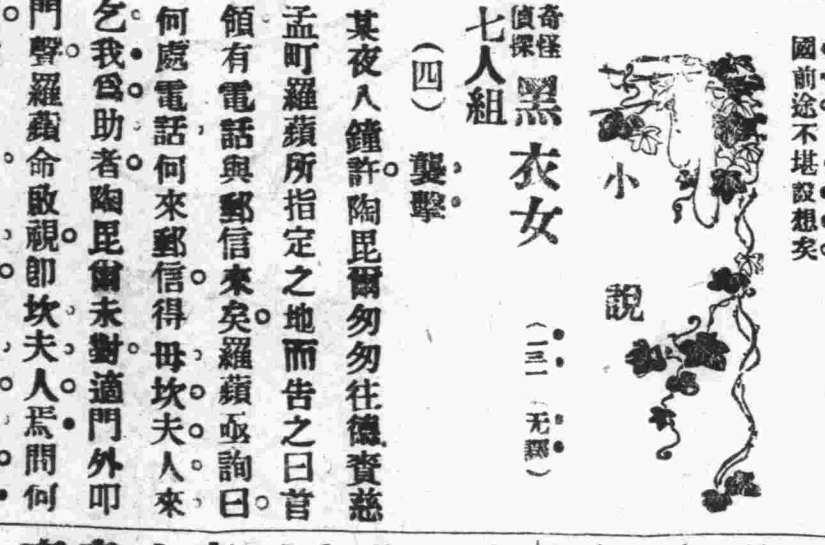 國前途不堪設想矣
小說
奇怪偵探 黑衣女 (一三一 无譯)
七人組
(四) 襲擊
某夜八鐘許陶毘爾匆匆往德賚慈
孟町羅蘋所指定之地而告之曰首
領有電話與郵信來矣羅蘋亟詢曰
何處電話何來郵信得毋坎夫人來
乞我爲助者陶毘爾未對適門外叩
門聲羅蘋命啟視卽坎夫人焉問何